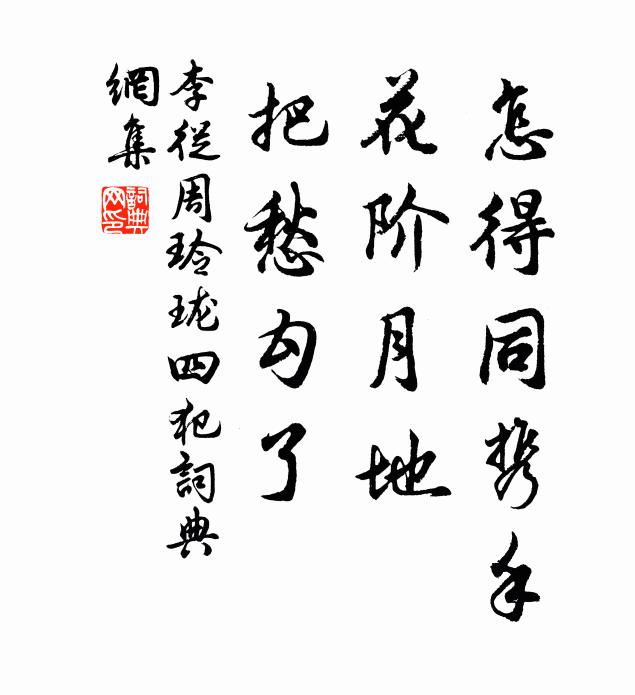 怎得同携手
花阶月地
把愁勾了
李從周玲珑四犯詞典
網集
詞典
网印